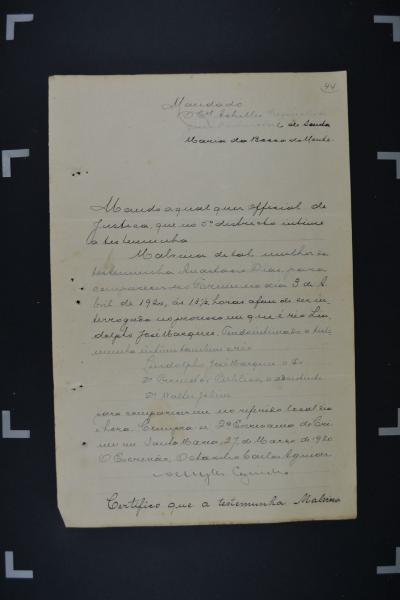 44
Mandado
O Dr. Achylles
de Santa
Maria da Bocca do Monte.
Mando a qual quer official de
Justiça, que no 5º districto intime
a testemunha
Malvina de tal mulher da
testemunha Anastacio Dias, para
comparecer no Forum no dia 3 de A
bril de 1920, ás 13½ horas afim de ser in
terrogada no processo em que é réo Lin
dolpho José Marques.
intime tambem o réo
Lindolpho José Marques o Dr.
Promotor Publico, o assistente
Dr. Walter Jobim
para comparecerem no referido local dia
e hora. Cumpra-se. 2º Escrivania do Cri
me em Santa Maria, 27 de Março de 1920
O Escrivão, Octacilio Carlos Aguiar
Certifico que a testemunha Malvina